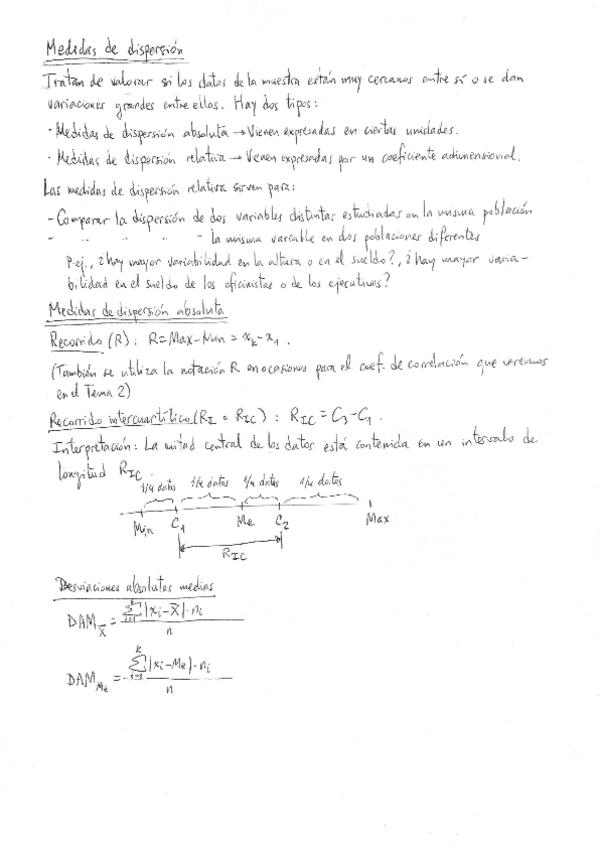 Medidas de dispersión
Tratan de valorar si los datos de la muestra están muy cercanos entre sí o se dan
variaciones grandes entre ellos. Hay dos tipos:
- Medidas de dispersión absoluta → Vienen expresadas en ciertas unidades.
- Medidas de dispersión relativa → Vienen expresadas por un coeficiente adimensional.
Las medidas de dispersión relativa sirven para:
- Comparar la dispersión de dos variables distintas estudiadas en la misma población
- " " " " la misma variable en dos poblaciones diferentes
P.ej., ¿hay mayor variabilidad en la altura o en el sueldo?, ¿hay mayor varia-
bilidad en el sueldo de los oficinistas o de los ejecutivos?
Medidas de dispersión absoluta
Recorrido (R): R = Max - Min = x_k - x_1.
(También se utiliza la notación R en ocasiones para el coef. de correlación que veremos
en el Tema 2)
Recorrido intercuartílico (R_I o R_IC): R_IC = C_3 - C_1.
Interpretación: La mitad central de los datos está contenida en un intervalo de
longitud R_IC
1/4 datos 1/4 datos 1/4 datos 1/4 datos
Min C_1 Me C_2 Max
R_IC
Desviaciones absolutas medias
DAM_x̄ = Σ_{i=1}^{k} |x_i - x̄| · n_i / n
DAM_Me = Σ_{i=1}^{k} |x_i - Me| · n_i / n